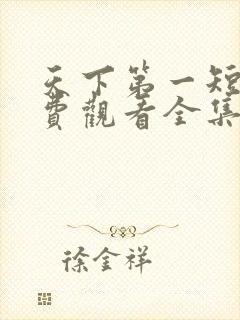 天下第一短
費觀看全集
徐金祥